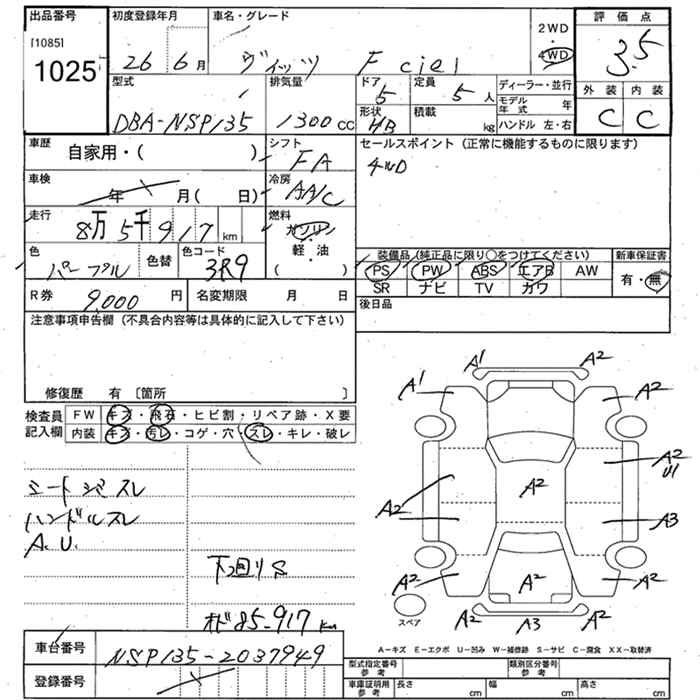 出品番号
[1085]
1025
初度登録年月
26 6月
車名・グレード
ヴィッツ F ciel
2WD
・
4WD
評価点
3.5
外装 内装
C C
型式
DBA-NSP135
排気量
1300cc
ドア
5
形状
HB
定員
5人
積載
kg
ディーラー・並行
モデル年式 年
ハンドル 左・右
車歴
自家用・( )
シフト
FA
車検
年 月( 日)
冷房
AA/C
走行
8万5千917km
燃料
ガソリン
軽・油
( )
色
パープル
色替
色コード
3R9
R券 9,000 円
名変期限 月 日
セールスポイント(正常に機能するものに限ります)
4WD
装備品(純正品に限り○をつけてください)
PS PW ABS エアB AW
SR ナビ TV カワ
新車保証書
有・無
後日品
注意事項申告欄(不具合内容等は具体的に記入して下さい)
修復歴 有 〔箇所 〕
検査員記入欄
FW キズ・飛石・ヒビ割・リペア跡・X要
内装 キズ・汚レ・コゲ・穴・スレ・キレ・破レ
シートシミスレ
ハンドルスレ
A.U.
下回りS
オド85-917km
A1 A2
A1 A2
A2 A2 A2
U1
A2 A3
A2 A2 A2
A2 A3 A2
スペア
A-キズ E-エクボ U-凹み W-補修跡 S-サビ C-腐食 XX-取替済
車台番号
NSP135-2037949
登録番号
型式指定番号
参考
類別区分番号
参考
車庫証明用
参考
長さ cm
幅 cm
高さ cm